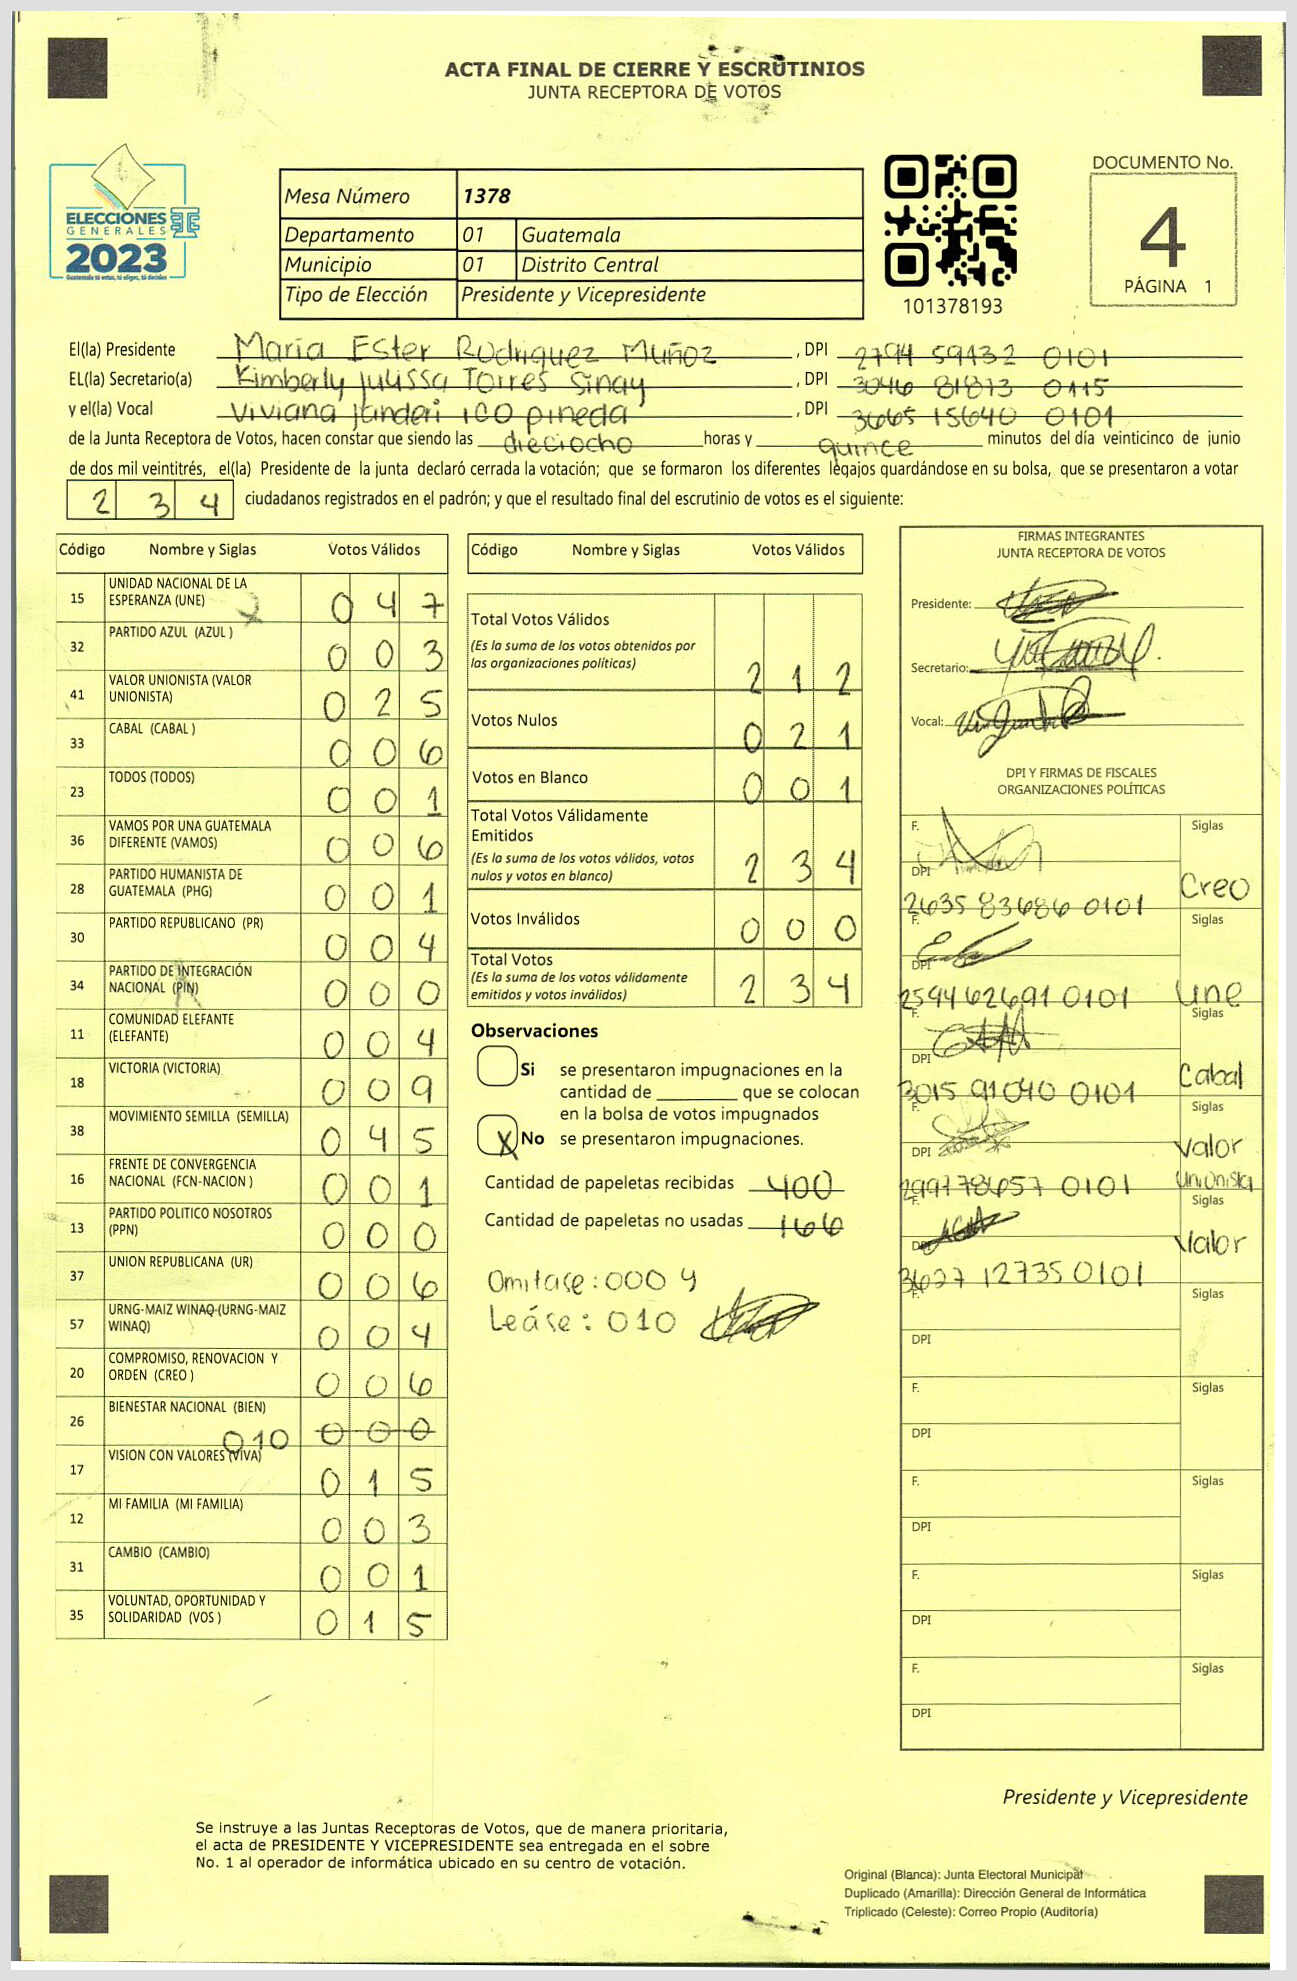 ACTA FINAL DE CIERRE Y ESCRUTINIOS
JUNTA RECEPTORA DE VOTOS
ELECCIONES
GENERALES
2023
Mesa Número 1378
Departamento 01 Guatemala
Municipio 01 Distrito Central
Tipo de Elección Presidente y Vicepresidente
101378193
DOCUMENTO No.
4
PÁGINA 1
El(la) Presidente María Ester Rodriguez Muñoz, DPI 2794 59132 0101
EL(la) Secretario(a) Kimberly Julissa Torres Sinay, DPI 3046 81873 0115
y el(la) Vocal Viviana ico pineda, DPI 3665 15640 0101
de la Junta Receptora de Votos, hacen constar que siendo las dieciocho horas y quince minutos del día veinticinco de junio
de dos mil veintitrés, el(la) Presidente de la junta declaró cerrada la votación; que se formaron los diferentes legajos guardándose en su bolsa, que se presentaron a votar
2 3 4 ciudadanos registrados en el padrón; y que el resultado final del escrutinio de votos es el siguiente:
Código Nombre y Siglas Votos Válidos
15 UNIDAD NACIONAL DE LA
ESPERANZA (UNE) 0 4 7
32 PARTIDO AZUL (AZUL ) 0 0 3
41 VALOR UNIONISTA (VALOR
UNIONISTA) 0 2 5
33 CABAL (CABAL ) 0 0 6
23 TODOS (TODOS) 0 0 1
36 VAMOS POR UNA GUATEMALA
DIFERENTE (VAMOS) 0 0 6
28 PARTIDO HUMANISTA DE
GUATEMALA (PHG) 0 0 1
30 PARTIDO REPUBLICANO (PR) 0 0 4
34 PARTIDO DE INTEGRACIÓN
NACIONAL (PIN) 0 0 0
11 COMUNIDAD ELEFANTE
(ELEFANTE) 0 0 4
18 VICTORIA (VICTORIA) 0 0 9
38 MOVIMIENTO SEMILLA (SEMILLA) 0 4 5
16 FRENTE DE CONVERGENCIA
NACIONAL (FCN-NACION ) 0 0 1
13 PARTIDO POLITICO NOSOTROS
(PPN) 0 0 0
37 UNION REPUBLICANA (UR) 0 0 6
57 URNG-MAIZ WINAQ (URNG-MAIZ
WINAQ) 0 0 4
20 COMPROMISO, RENOVACION Y
ORDEN (CREO ) 0 0 6
26 BIENESTAR NACIONAL (BIEN) 0 0 0
010
17 VISION CON VALORES (VIVA) 0 1 5
12 MI FAMILIA (MI FAMILIA) 0 0 3
31 CAMBIO (CAMBIO) 0 0 1
35 VOLUNTAD, OPORTUNIDAD Y
SOLIDARIDAD (VOS ) 0 1 5
Código Nombre y Siglas Votos Válidos
Total Votos Válidos
(Es la suma de los votos obtenidos por
las organizaciones políticas) 2 1 2
Votos Nulos 0 2 1
Votos en Blanco 0 0 1
Total Votos Válidamente
Emitidos
(Es la suma de los votos válidos, votos
nulos y votos en blanco) 2 3 4
Votos Inválidos 0 0 0
Total Votos
(Es la suma de los votos válidamente
emitidos y votos inválidos) 2 3 4
Observaciones
Si se presentaron impugnaciones en la
cantidad de ________ que se colocan
en la bolsa de votos impugnados
X No se presentaron impugnaciones.
Cantidad de papeletas recibidas 400
Cantidad de papeletas no usadas 166
Omitase: 000 y
Leáse: 010
FIRMAS INTEGRANTES
JUNTA RECEPTORA DE VOTOS
Presidente:
Secretario:
Vocal:
DPI Y FIRMAS DE FISCALES
ORGANIZACIONES POLÍTICAS
F. Siglas
DPI
2635 83686 0101 Creo
F. Siglas
DPI
2594 62691 0101 Une
F. Siglas
DPI
3015 91040 0101 Cabal
F. Siglas
DPI
2997 78657 0101 Valor Unionista
F. Siglas
DPI
3627 12735 0101 Valor
F. Siglas
DPI
F. Siglas
DPI
F. Siglas
DPI
F. Siglas
DPI
F. Siglas
DPI
Presidente y Vicepresidente
Se instruye a las Juntas Receptoras de Votos, que de manera prioritaria,
el acta de PRESIDENTE Y VICEPRESIDENTE sea entregada en el sobre
No. 1 al operador de informática ubicado en su centro de votación.
Original (Blanca): Junta Electoral Municipal
Duplicado (Amarilla): Dirección General de Informática
Triplicado (Celeste): Correo Propio (Auditoría)